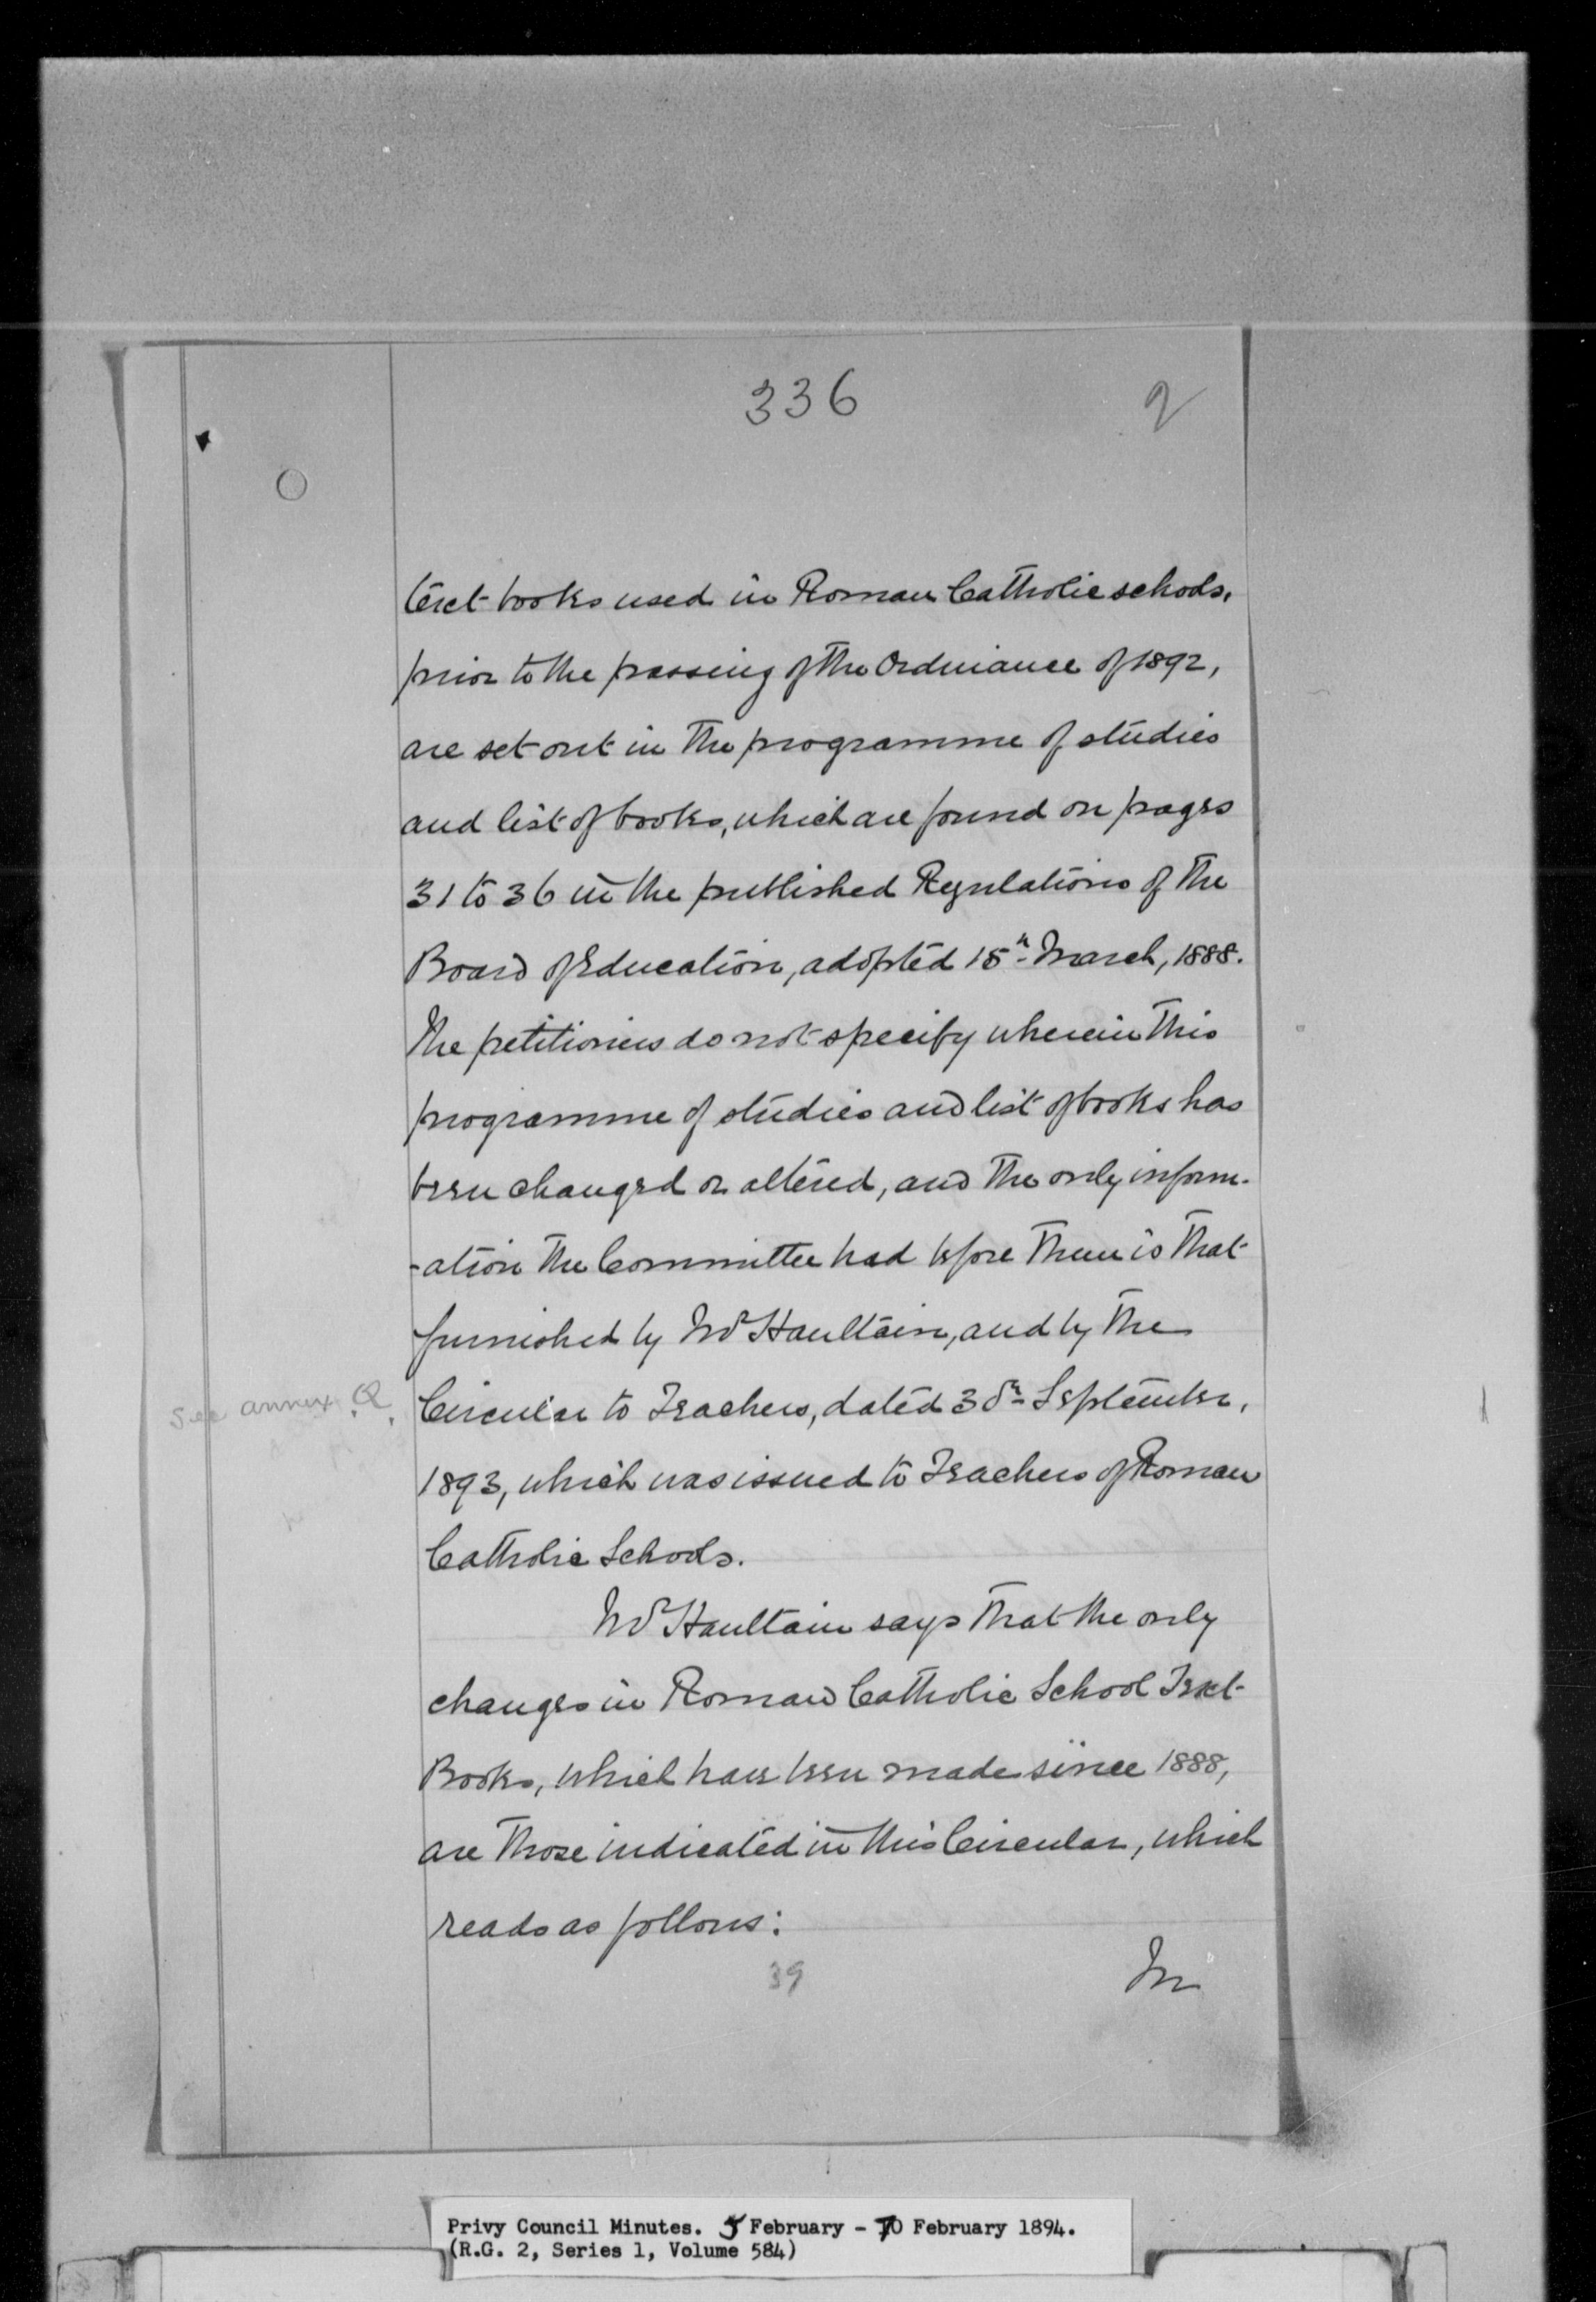 336
2
text-books used in Roman Catholic schools,
prior to the passing of the Ordinance of 1892,
are set out in the programme of studies
and list of books, which are found on pages
31 to 36 in the published Regulations of the
Board of Education, adopted 15th March, 1888.
The petitioners do not specify wherein this
programme of studies and list of books has
been changed or altered, and the only inform-
-ation the Committee had before them is that
furnished by Mr Haultain, and by the
See annex Q.
Circular to Teachers, dated 30th September,
1893, which was issued to Teachers of Roman
Catholic Schools.
Mr Haultain says that the only
changes in Roman Catholic School Text-
Books, which have been made since 1888,
are those indicated in this Circular, which
reads as follows:
39
In
Privy Council Minutes. 5 February - 10 February 1894.
(R.G. 2, Series 1, Volume 584)